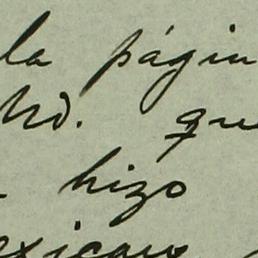 la págin
Ud. que
hizo
exicano